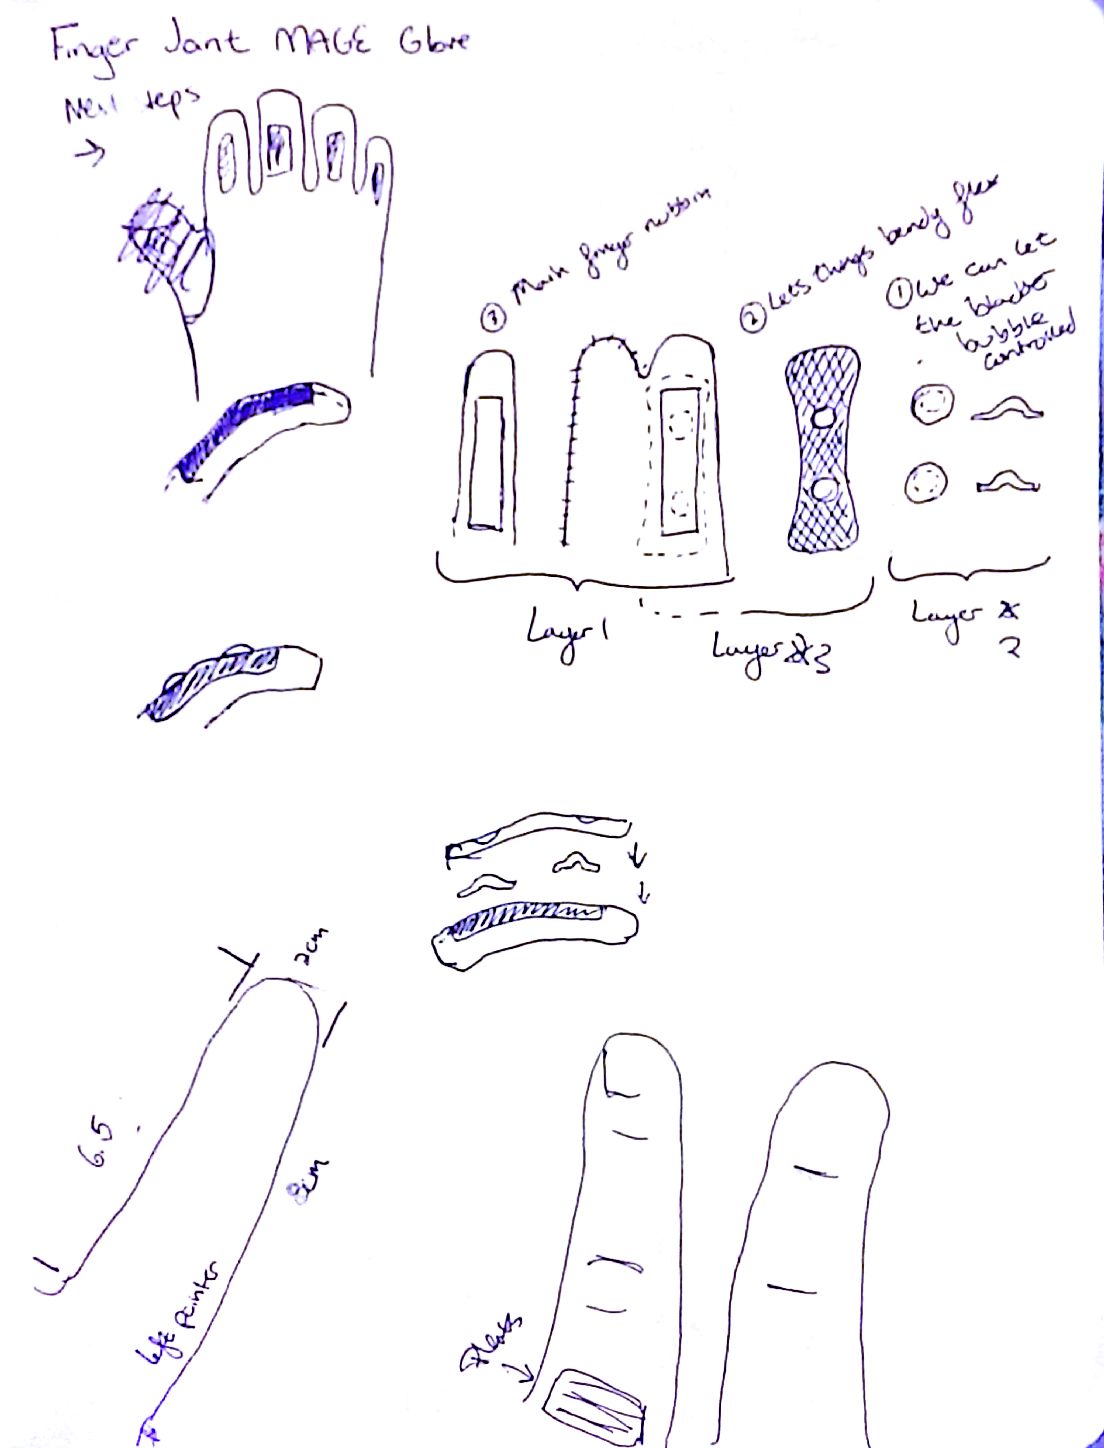 Finger Jant MAGE Glove
Next steps
→
③ Main finger nubbin
② Lets things bendy flex
① We can let
the bladder
bubble
controlled
Layer 1
Layer 3
Layer
2
2cm
6.5
8cm
left pointer
Pleats